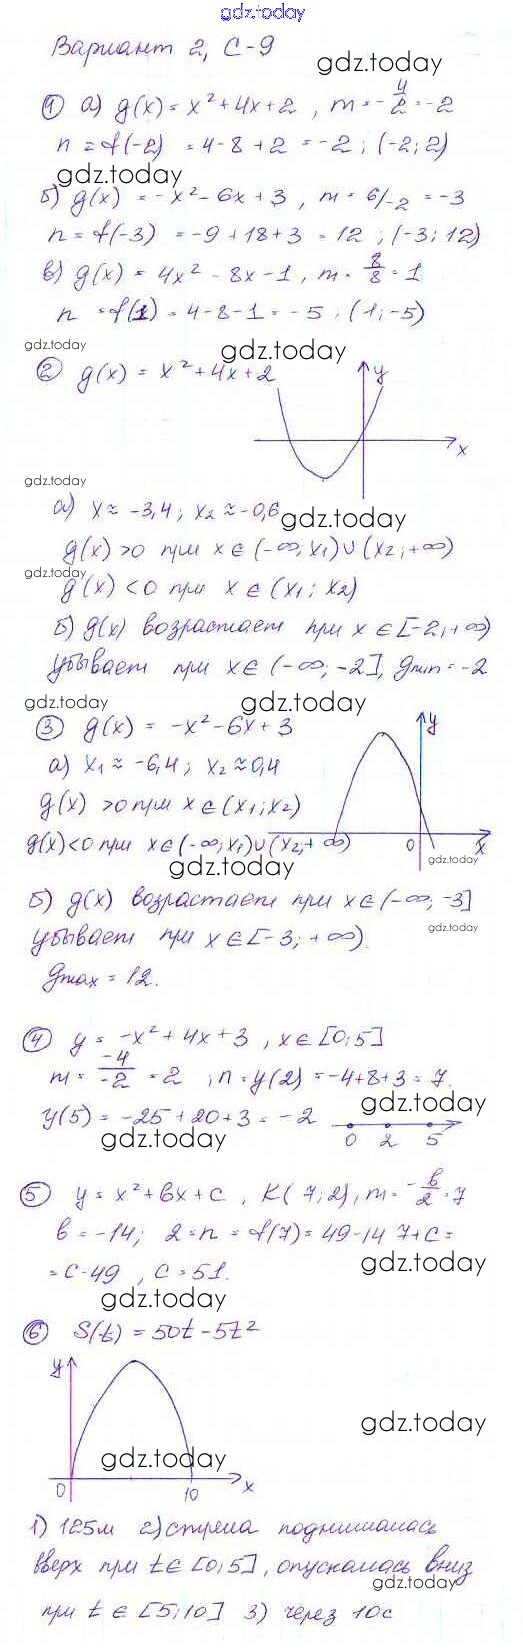 gdz.today
Вариант 2, С-9
gdz.today
① а) g(x) = x² + 4x + 2 , m = - 4/2 = -2
n = f(-2) = 4 - 8 + 2 = -2 ; (-2; 2)
gdz.today
б) g(x) = -x² - 6x + 3 , m = 6/-2 = -3
n = f(-3) = -9 + 18 + 3 = 12 ; (-3; 12)
в) g(x) = 4x² - 8x - 1 , m = 8/8 = 1
n = f(1) = 4 - 8 - 1 = -5 ; (1; -5)
gdz.today gdz.today
② g(x) = x² + 4x + 2
y
x
gdz.today
а) x ≈ -3,4 ; x₂ ≈ -0,6
gdz.today
g(x) > 0 при x ∈ (-∞; x₁) ∪ (x₂; +∞)
gdz.today
g(x) < 0 при x ∈ (x₁; x₂)
б) g(x) возрастает при x ∈ [-2; +∞)
убывает при x ∈ (-∞; -2], gmin = -2
gdz.today gdz.today
③ g(x) = -x² - 6x + 3
y
а) x₁ ≈ -6,4 ; x₂ ≈ 0,4
g(x) > 0 при x ∈ (x₁; x₂)
g(x) < 0 при x ∈ (-∞; x₁) ∪ (x₂; +∞)
0 x
gdz.today gdz.today
б) g(x) возрастает при x ∈ (-∞; -3]
убывает при x ∈ [-3; +∞)
gdz.today
gmax = 12.
④ y = -x² + 4x + 3 , x ∈ [0; 5]
m = -4/-2 = 2 ; n = y(2) = -4 + 8 + 3 = 7.
gdz.today
y(5) = -25 + 20 + 3 = -2
0 2 5
gdz.today
⑤ y = x² + bx + c , K(7; 2), m = - b/2 = 7
b = -14; 2 = n = f(7) = 49 - 14 7 + c =
gdz.today
= c - 49 , c = 51.
gdz.today
⑥ S(t) = 50t - 5t²
y
gdz.today
gdz.today
0 10 x
1) 125м 2) стрела поднималась
вверх при t ∈ [0; 5], опускалась вниз
gdz.today
при t ∈ [5; 10] 3) через 10с